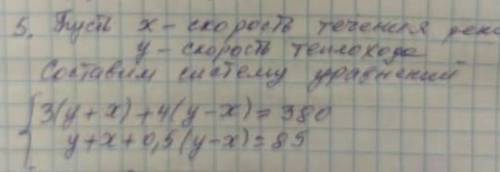 5. Пусть x - скорость течения реки
y - скорость теплохода
Составим систему уравнений
{3(y+x)+4(y-x)=380
y+x+0,5(y-x)=85